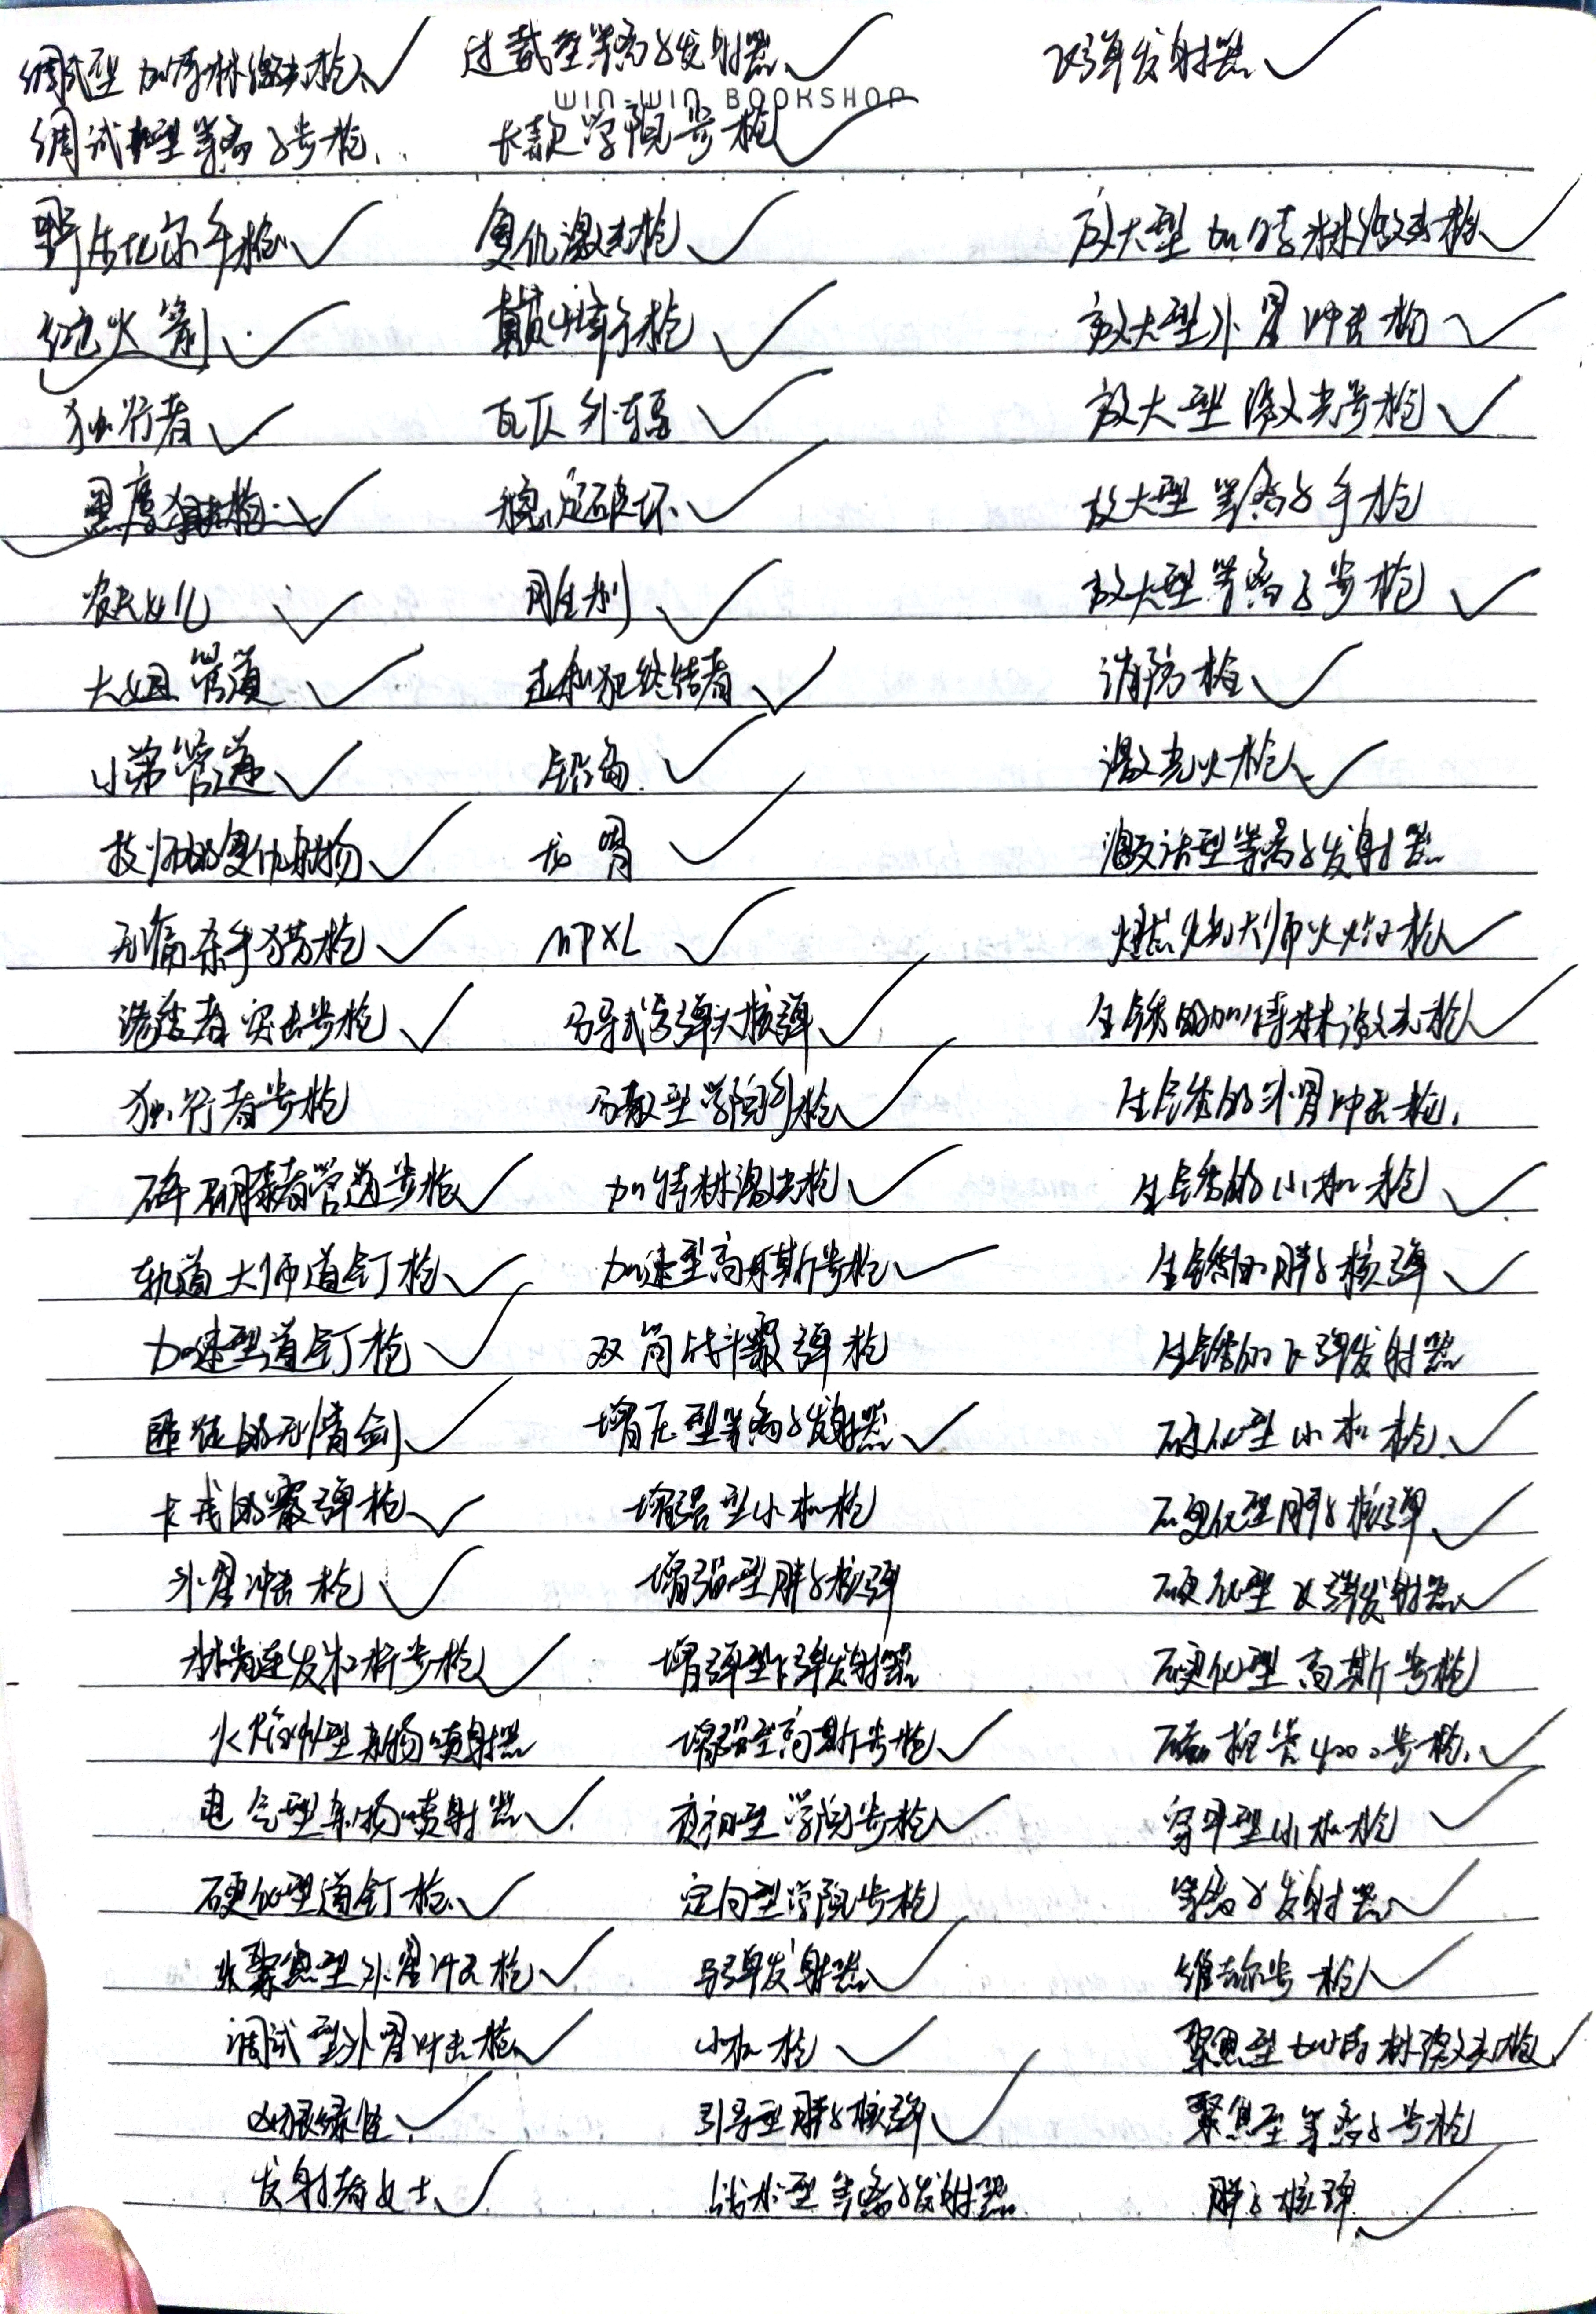 调试型加特林激光枪 过载型等离子发射器 飞弹发射器
WIN-WIN BOOKSHOP
调试型等离子步枪 长款学院步枪
手枪 复仇激光枪 放大型加特林激光枪
红火箭 手枪 放大型外星冲击枪
独行者 瓦仄 放大型激光步枪
黑度 稳定破坏 放大型等离子手枪
农夫女儿 放大型等离子步枪
大姐管道 终结者 消防枪
小弟管道 铅角 激光火枪
技师的复仇 龙胃 激活型等离子发射器
无痛杀手猎枪 MPXL 燃烧大师火焰枪
渗透者突击步枪 弹头核弹 生锈的加特林激光枪
独行者步枪 分散型学院手枪 生锈的外星冲击枪
碎膝者管道步枪 加特林激光枪 生锈的小机枪
轨道大师道钉枪 加速型高斯步枪 生锈的胖子核弹
加速型道钉枪 双筒战斗霰弹枪 生锈的飞弹发射器
匪徒的无情剑 增压型等离子发射器 硬化型小机枪
卡戎的霰弹枪 增强型小机枪 硬化型胖子核弹
外星冲击枪 增强型胖子核弹 硬化型飞弹发射器
林肯连发杠杆步枪 增强型飞弹发射器 硬化型高斯步枪
火焰型杂物喷射器 增强型高斯步枪 4000步枪
电气型杂物喷射器 学院步枪 穿甲型小机枪
硬化型道钉枪 定向型学院步枪 等离子发射器
聚焦型外星冲击枪 弓弹发射器 维京步枪
调试型外星冲击枪 小机枪 聚焦型加特林激光枪
引导型胖子核弹 聚焦型等离子步枪
发射者女士 战术型等离子发射器 胖子核弹